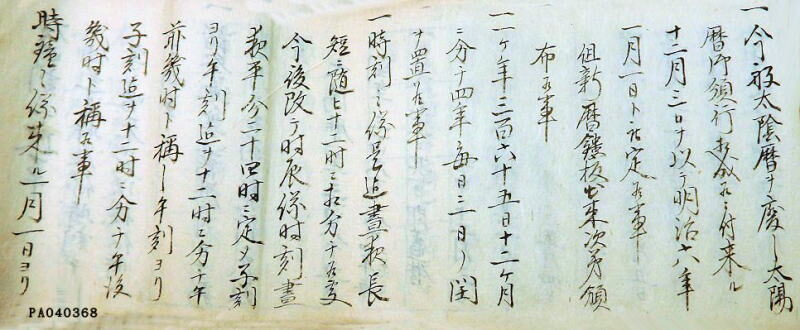 一今般太陰暦ヲ廃シ太陽
暦御頒行相成候ニ付来ル
十二月三日ヲ以テ明治六年
一月一日ト被定候事
但新暦鏤板出来次第頒
布候事
一一ケ年三百六十五日十二ケ月
ニ分チ四年毎日一日ノ閏
ヲ置候事
一時刻ノ儀是迄昼夜長
短ニ随ヒ十二時ニ相分チ候処
今後改テ時辰儀時刻昼
夜平分二十四時ニ定メ子刻
ヨリ午刻迄ヲ十二時ニ分チ午
前幾時ト称シ午刻ヨリ
子刻迄ヲ十二時ニ分チ午後
幾時ト称候事
時鐘ノ儀来ル一月一日ヨリ
PA040368